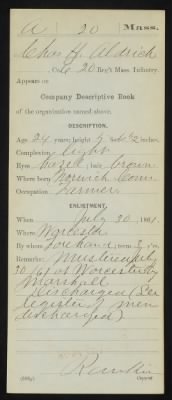 A 20 Mass.
Chas. H. Aldrich
, Co. G, 20 Reg't Mass. Infantry.
Appears on
Company Descriptive Book
of the organization named above.
DESCRIPTION.
Age 24 years; height 5 feet 6½ inches.
Complexion light
Eyes hazel; hair brown
Where born Norwich Conn
Occupation Farmer
ENLISTMENT.
When July 20, 1861.
Where Worcester
By whom ; term 3 y'rs.
Remarks: Mustered July
30/61 at Worcester by
Marshall
Discharged (See
register of men
discharged)
Copyist